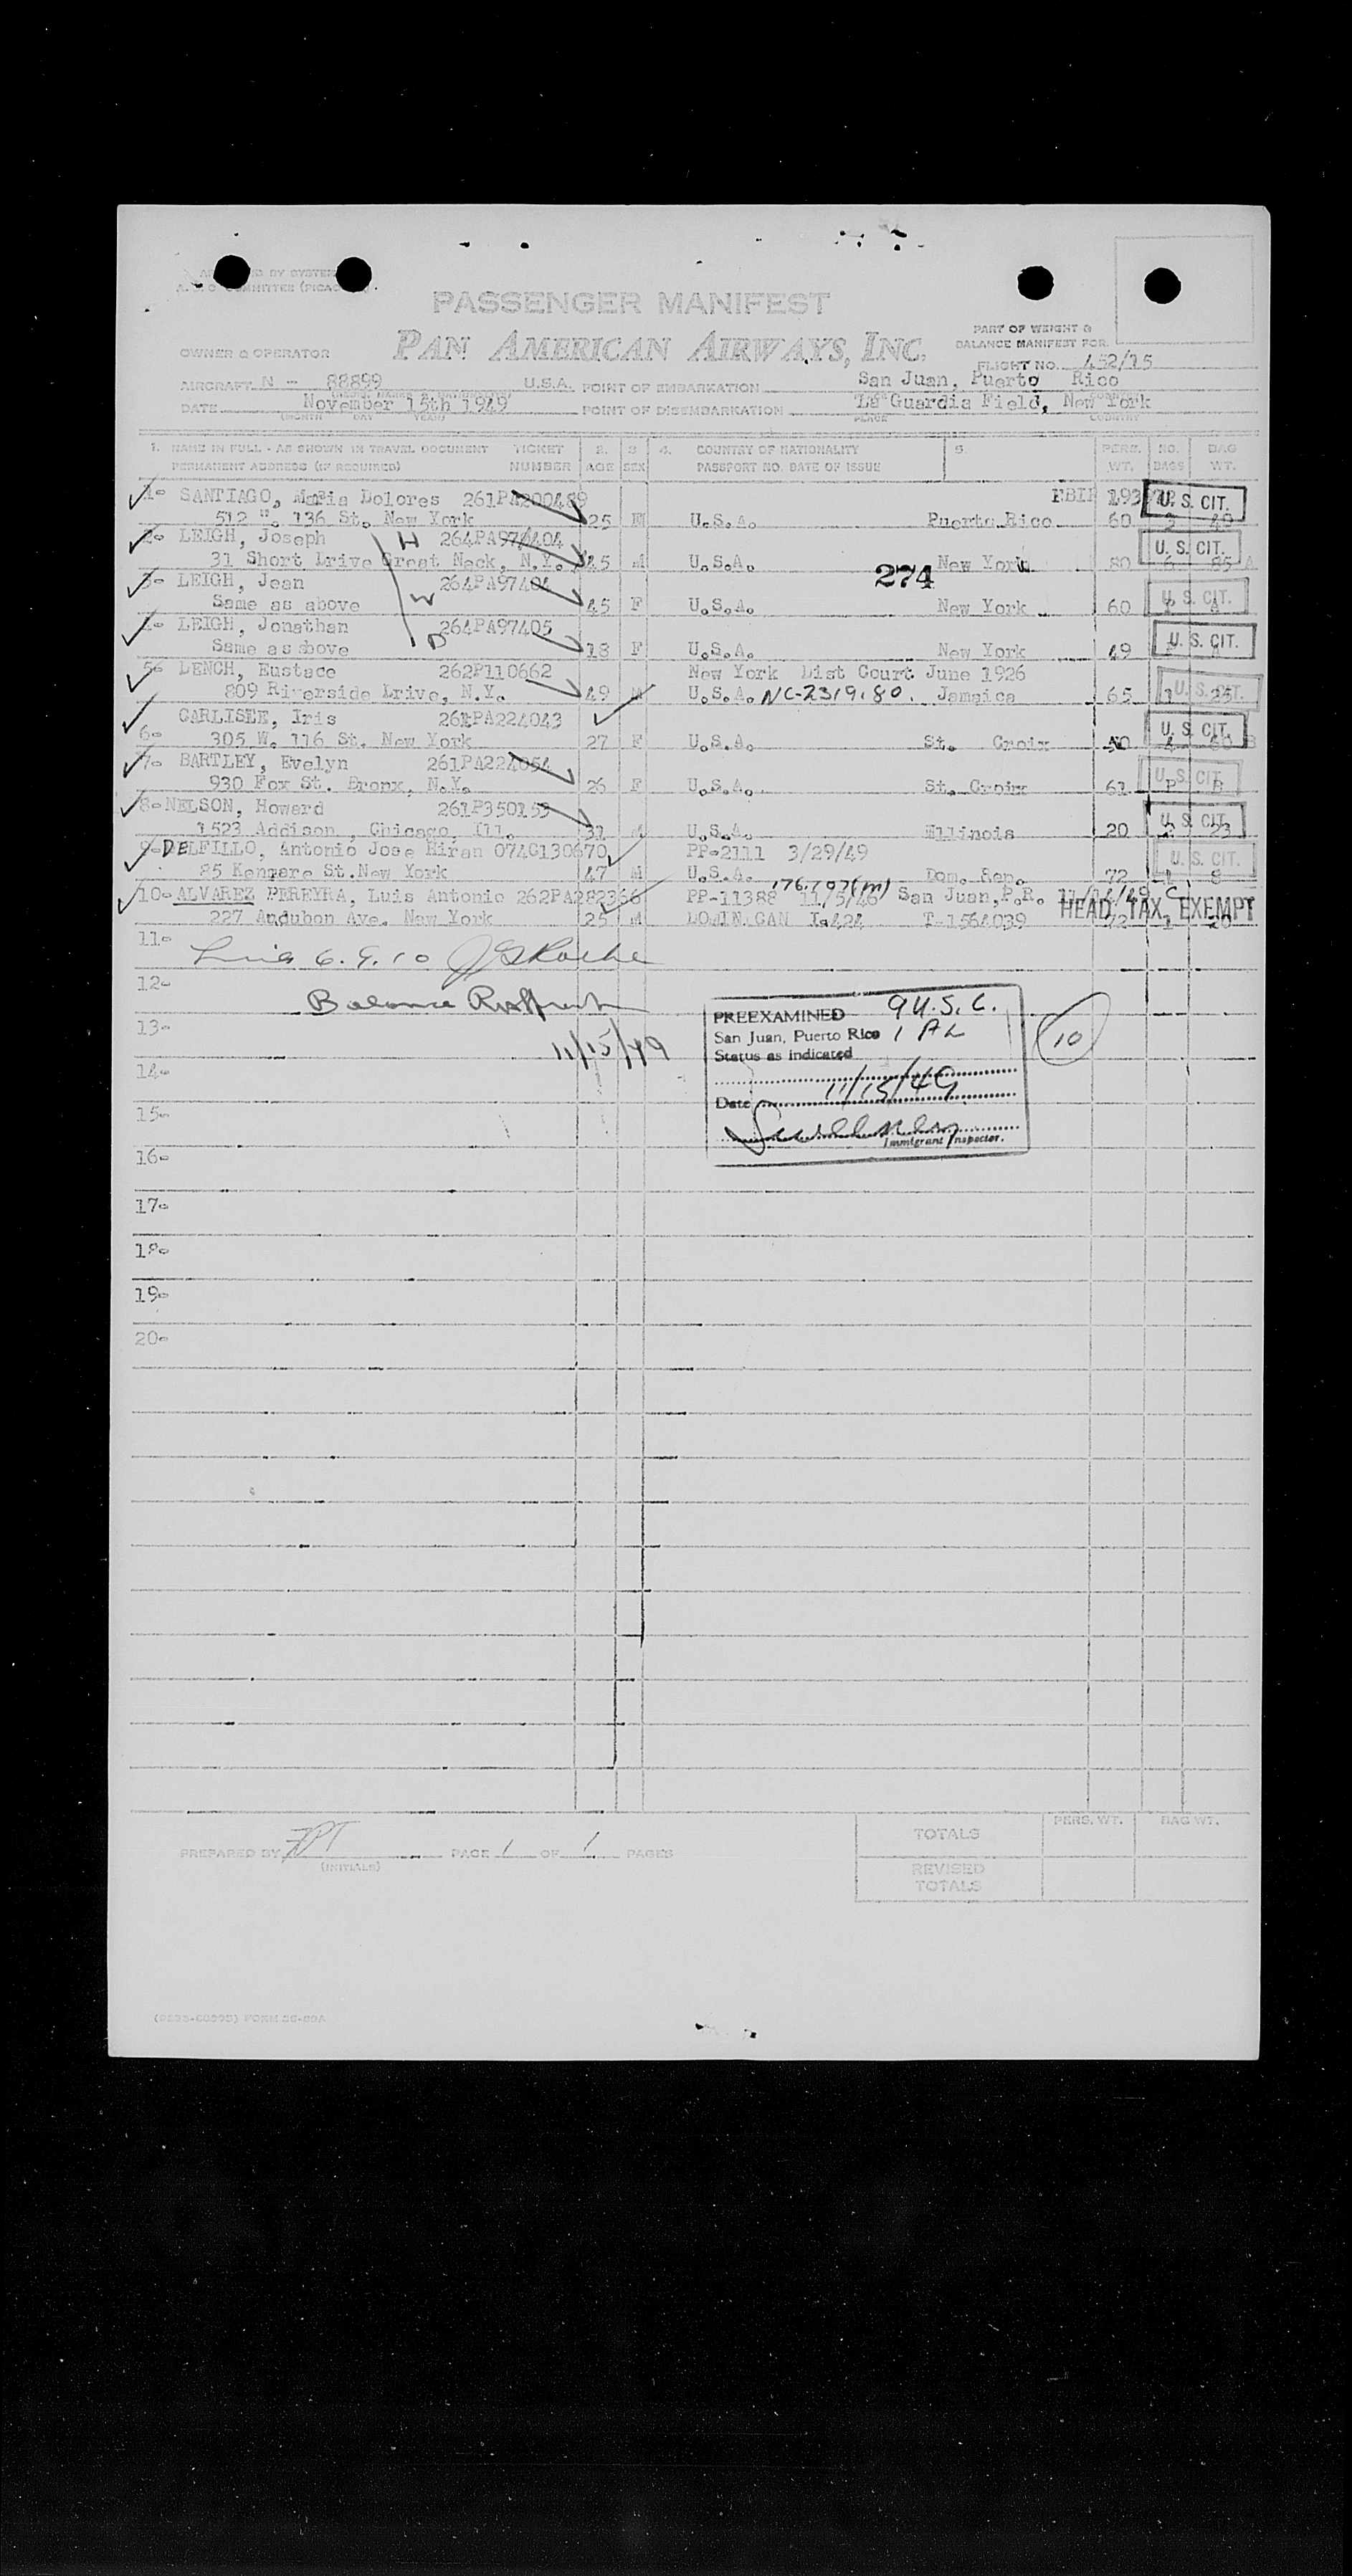 PASSENGER MANIFEST
PAN AMERICAN AIRWAYS, INC.
PART OF WEIGHT &
BALANCE MANIFEST FOR
OWNER & OPERATOR
FLIGHT NO. 452/15
AIRCRAFT N - 88899 U.S.A. POINT OF EMBARKATION San Juan, Puerto Rico
DATE November 15th 1949 POINT OF DISEMBARKATION La Guardia Field, New York
(MONTH DAY YEAR) PLACE COUNTRY
1. NAME IN FULL - AS SHOWN IN TRAVEL DOCUMENT TICKET 2. 3 4. COUNTRY OF NATIONALITY 5. PERS. NO. BAG
PERMANENT ADDRESS (IF REQUIRED) NUMBER AGE SEX PASSPORT NO. DATE OF ISSUE WT. BAGS WT.
1- SANTIAGO, Maria Dolores 261PA200489 U. S. CIT.
512 W. 136 St. New York 25 F U.S.A. Puerto Rico 60
2- LEIGH, Joseph H U. S. CIT.
31 Short Drive Great Neck, N.Y. 45 M U.S.A. New York 80 6 85
274
3- LEIGH, Jean W 264PA97404 U. S. CIT.
Same as above 45 F U.S.A. New York 60
4- LEIGH, Jonathan D 264PA97405 U. S. CIT.
Same as above 18 F U.S.A. New York 49
5- LENCH, Eustace 262P110662 New York Dist Court June 1926
809 Riverside Drive, N.Y. 49 M U.S.A. NC-2319180. Jamaica 65 1 25 U. S. CIT.
CARLISLE, Iris 261PA224043 U. S. CIT.
6- 305 W. 116 St. New York 27 F U.S.A. St. Croix
7- BARTLEY, Evelyn 261PA224054 U. S. CIT.
930 Fox St. Bronx, N.Y. 26 F U.S.A. St. Croix 61 P B
8- NELSON, Howard 261P350153 U. S. CIT.
1523 Addison, Chicago, Ill. 31 M U.S.A. Illinois 20 2 23
9- DELFILLO, Antonio Jose Hiran 074C130670 PP-2111 3/29/49 U. S. CIT.
85 Kenmare St. New York 47 M U.S.A. Dom. Rep. 72 1 8
176707(m)
10- ALVAREZ PEREYRA, Luis Antonio 262PA282366 PP-11388 11/5/46 San Juan, P.R. HEAD TAX EXEMPT
227 Audubon Ave. New York 25 M DOMINICAN I-424 T-1564039 72 1
11-
12-
13-
11/15/49
14-
15-
16-
17-
18-
19-
20-
PREEXAMINED 9 U.S.C.
San Juan, Puerto Rico 1 AL
Status as indicated
Date 11/15/49
Immigrant Inspector.
10
PREPARED BY (INITIALS) PAGE 1 OF 1 PAGES
PERS. WT. BAG WT.
TOTALS
REVISED
TOTALS